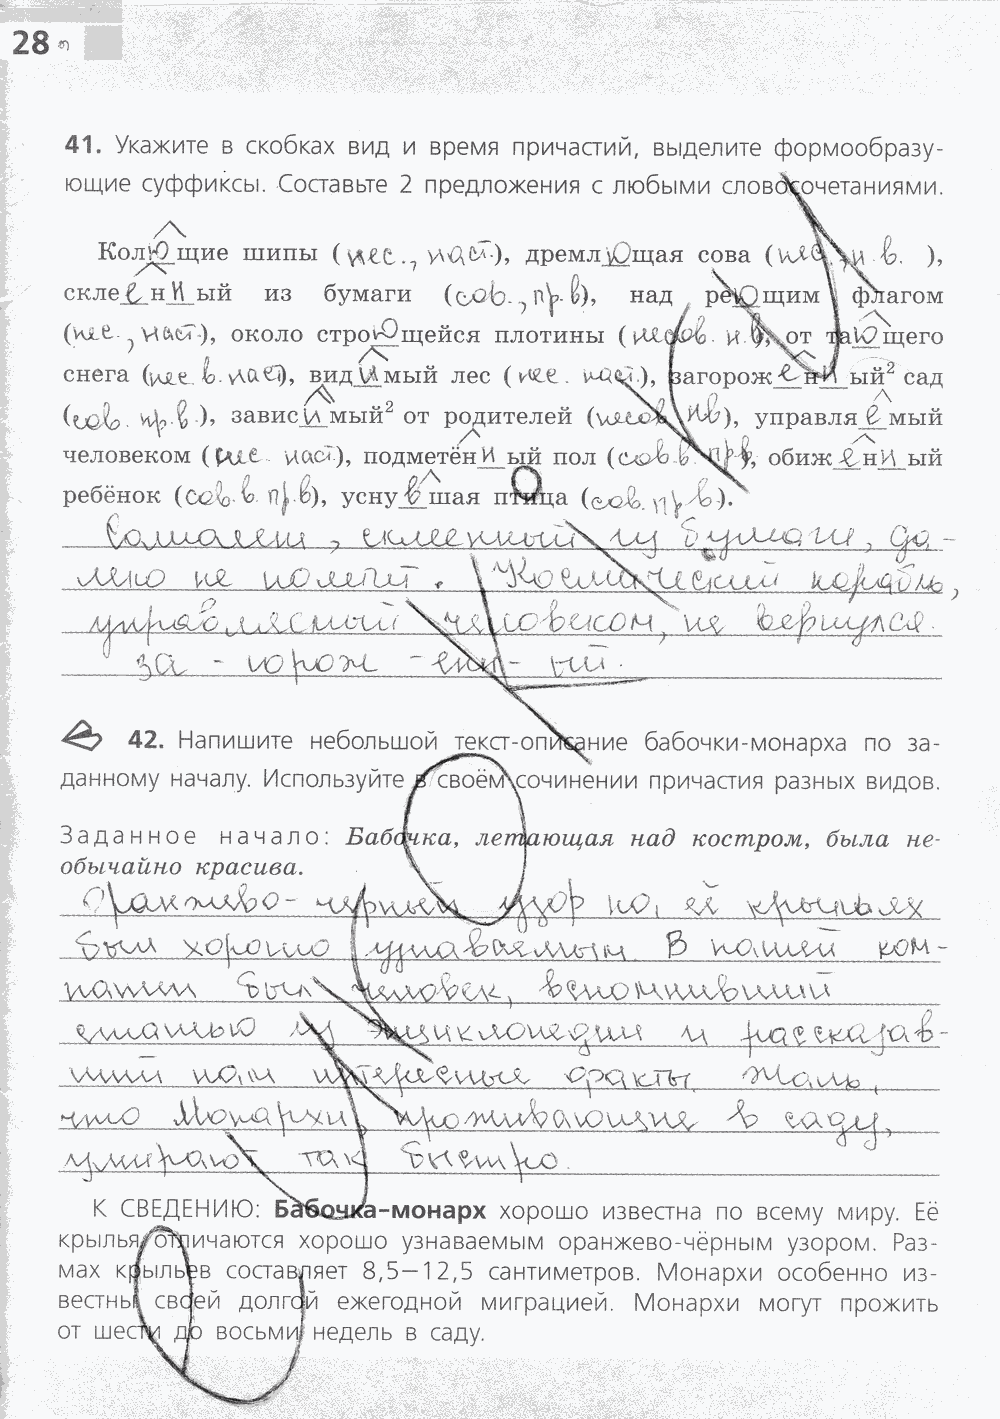 28
41. Укажите в скобках вид и время причастий, выделите формообразу-
ющие суффиксы. Составьте 2 предложения с любыми словосочетаниями.
Колющие шипы (нес., наст.), дремлющая сова (нес., н.в. ),
склеенный из бумаги (сов., пр.в), над реющим флагом
(нес., наст.), около строющейся плотины (несов. н.в), от тающего
снега (нес.в.наст), видимый лес (нес. наст.), загороженный² сад
(сов. пр.в.), зависимый² от родителей (несов нв), управляемый
человеком (нес. наст), подметённый пол (сов.в. пр.в), обиженный
ребёнок (сов.в. пр.в), уснувшая птица (сов. пр.в.).
Самолет, склеенный из бумаги, да-
леко не полетит. Космический корабль,
управляемый человеком, не вернулся.
за - горож - енн - ый.
42. Напишите небольшой текст-описание бабочки-монарха по за-
данному началу. Используйте в своём сочинении причастия разных видов.
Заданное начало: Бабочка, летающая над костром, была не-
обычайно красива.
Оранжево-черный узор на её крыльях
был хорошо узнаваемым. В нашей ком-
пании был человек, вспомнивший
статью из энциклопедии и рассказав-
ший нам интересные факты. Жаль,
что Монархи, проживающие в саду,
умирают так быстро.
К СВЕДЕНИЮ: Бабочка-монарх хорошо известна по всему миру. Её
крылья отличаются хорошо узнаваемым оранжево-чёрным узором. Раз-
мах крыльев составляет 8,5—12,5 сантиметров. Монархи особенно из-
вестны своей долгой ежегодной миграцией. Монархи могут прожить
от шести до восьми недель в саду.